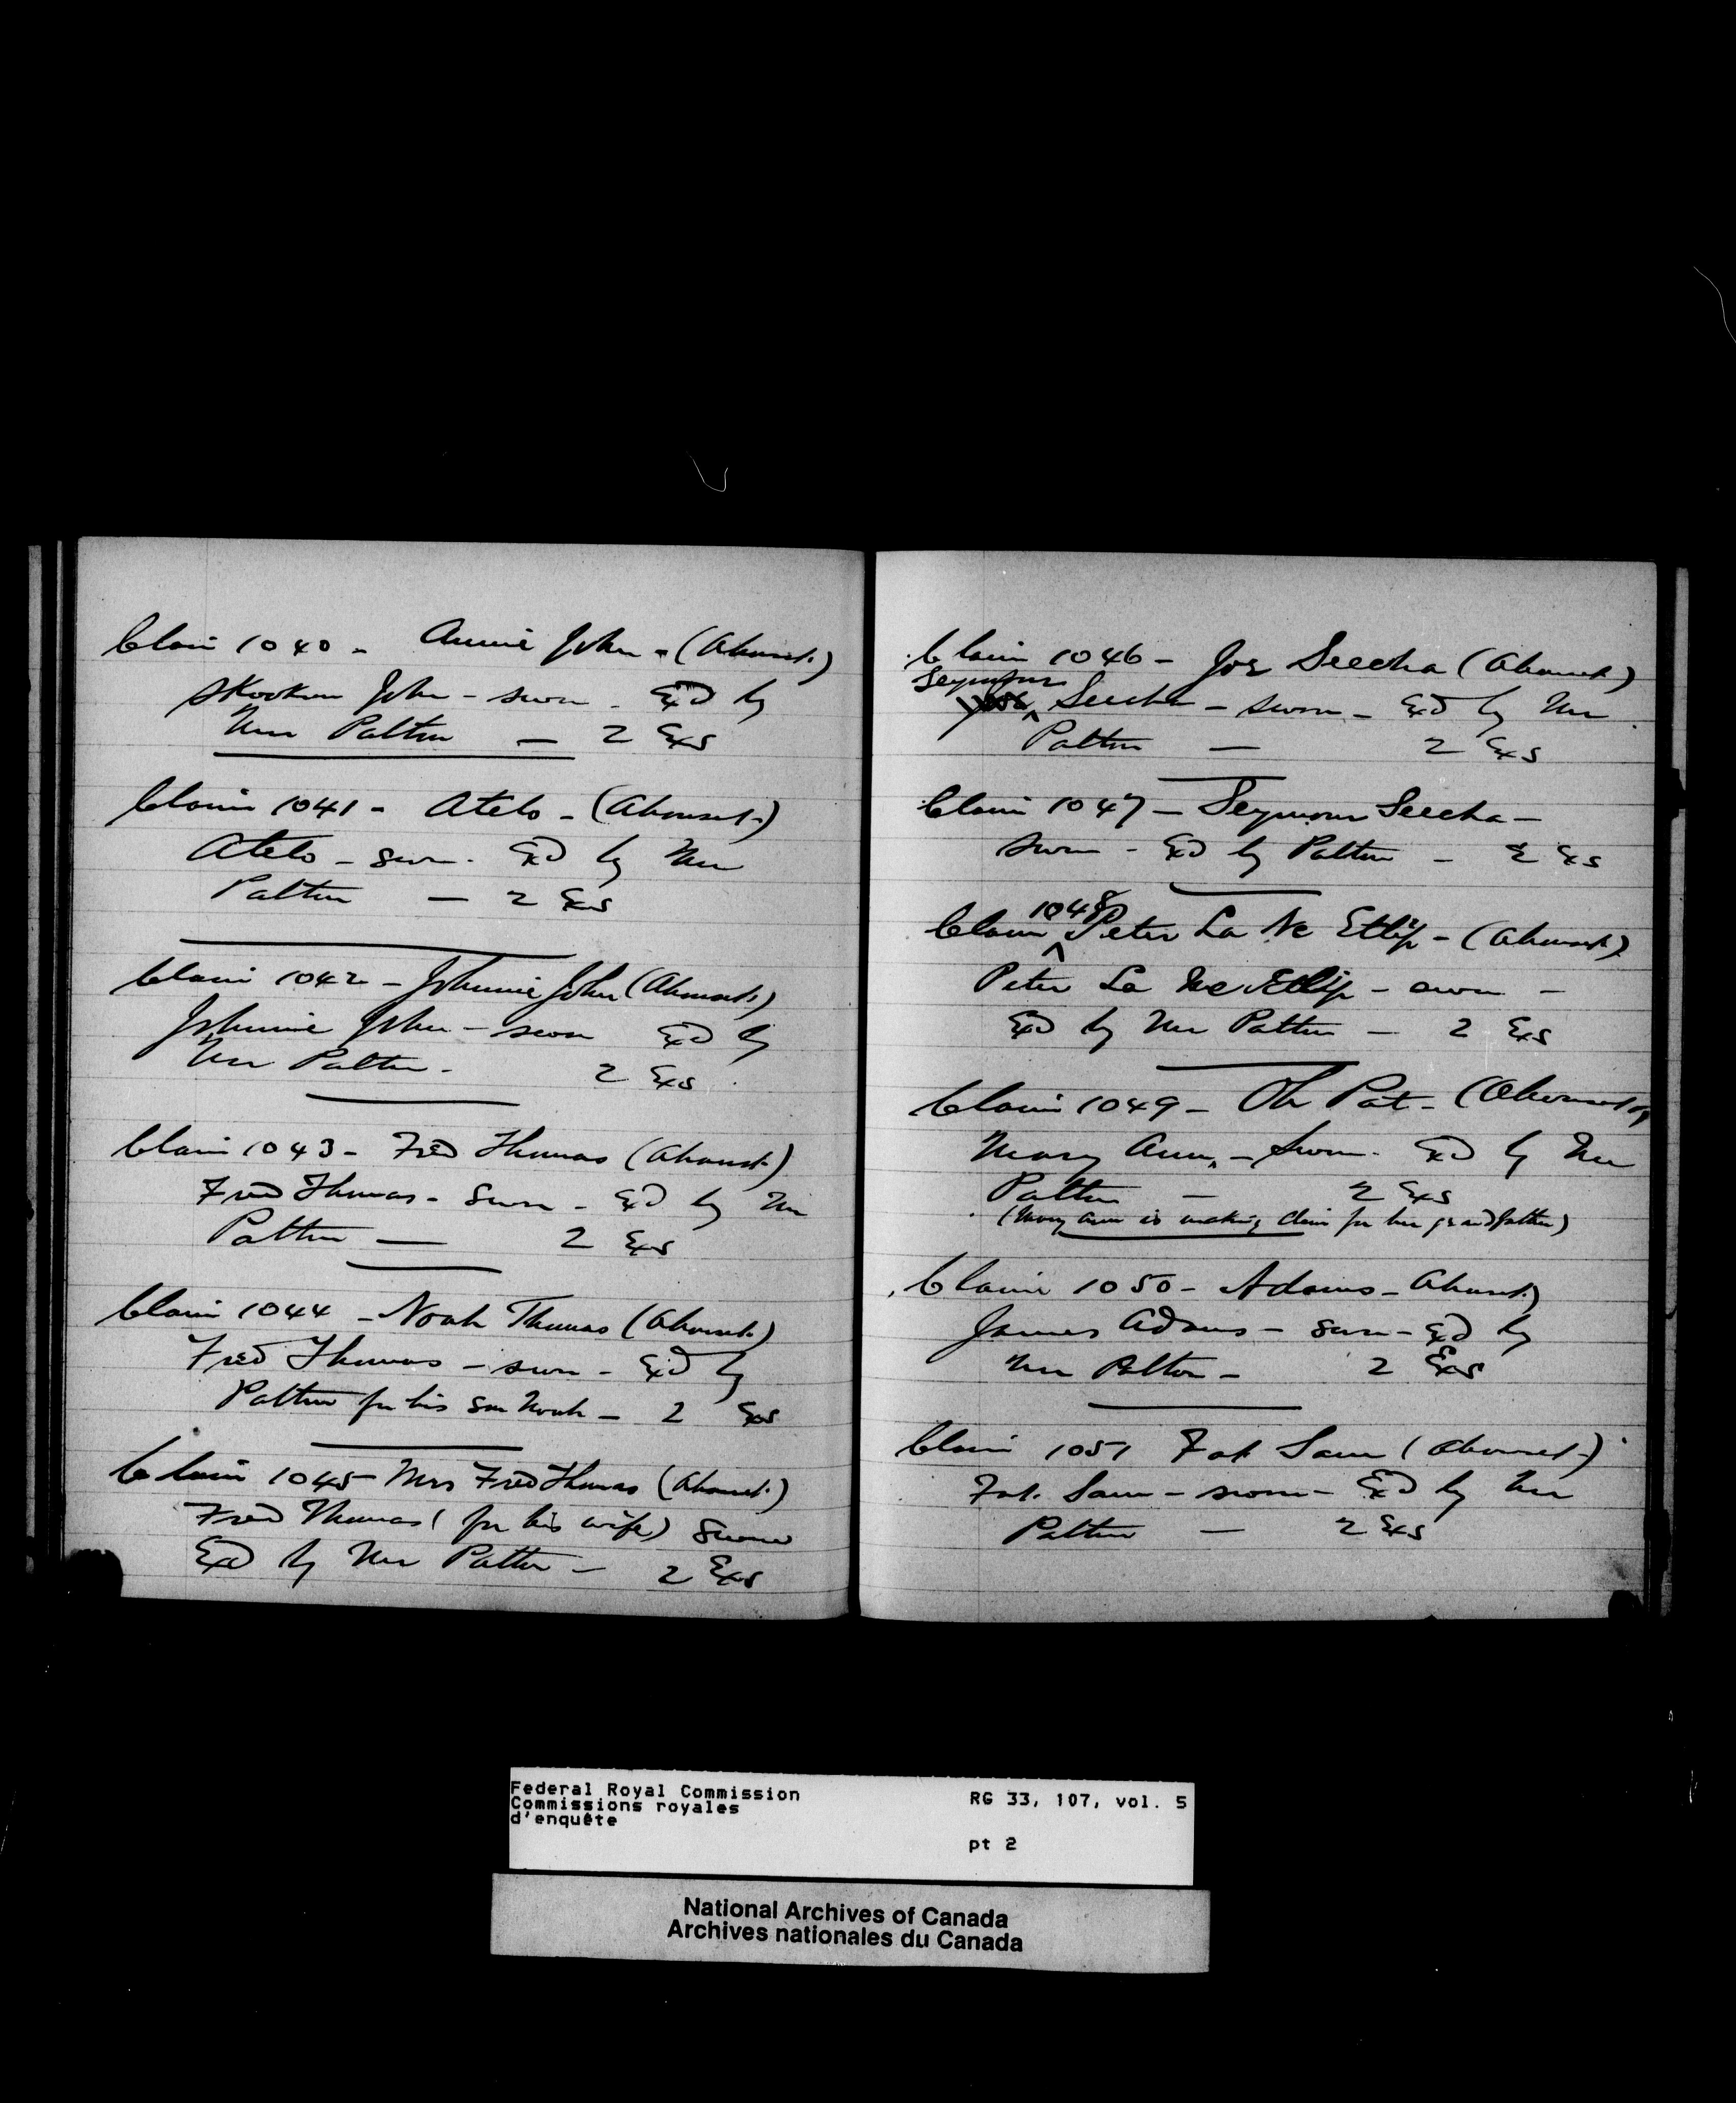 Claim 1040 - Annie John - (Ahouset.)
Skookum John - sworn - Exd by
Mr Patton — 2 Exs
Claim 1041 - Atelo - (Ahouset.)
Atelo - sworn. Exd by Mr
Patton — 2 Exs
Claim 1042 - Johnnie John (Ahouset.)
Johnnie John - sworn Exd by
Mr Patton - 2 Exs.
Claim 1043 - Fred Thomas (Ahouset.)
Fred Thomas - Sworn - Exd by Mr
Patton — 2 Exs
Claim 1044 - Noah Thomas (Ahouset.)
Fred Thomas - sworn - Exd by
Patton for his son Noah - 2 Exs
Claim 1045 - Mrs Fred Thomas (Ahouset.)
Fred Thomas (for his wife) Sworn
Exd by Mr Patton - 2 Exs
Claim 1046 - Joe Seecha (Ahouset.)
Seymour
Seecha - sworn - Exd by Mr
Patton — 2 Exs
Claim 1047 - Seymour Seecha -
sworn - Exd by Patton - 2 Exs
1048
Claim ^ Peter La Ne Etlip - (Ahouset.)
Peter La Ne Etlip - sworn -
Exd by Mr Patton - 2 Exs
Claim 1049 - Oh Pat - (Ahouset)
Mary Ann, - Sworn. Exd by Mr
Patton - 2 Exs
(Mary Ann is making claim for her grandfather)
Claim 1050 - Adams - Ahouset.)
James Adams - sworn - Exd by
Mr Patton - 2 Exs
Claim 1051 Fat Sam (Ahouset.)
Fat. Sam - sworn - Exd by Mr
Patton — 2 Exs
Federal Royal Commission RG 33, 107, vol. 5
Commissions royales
d'enquête
pt 2
National Archives of Canada
Archives nationales du Canada